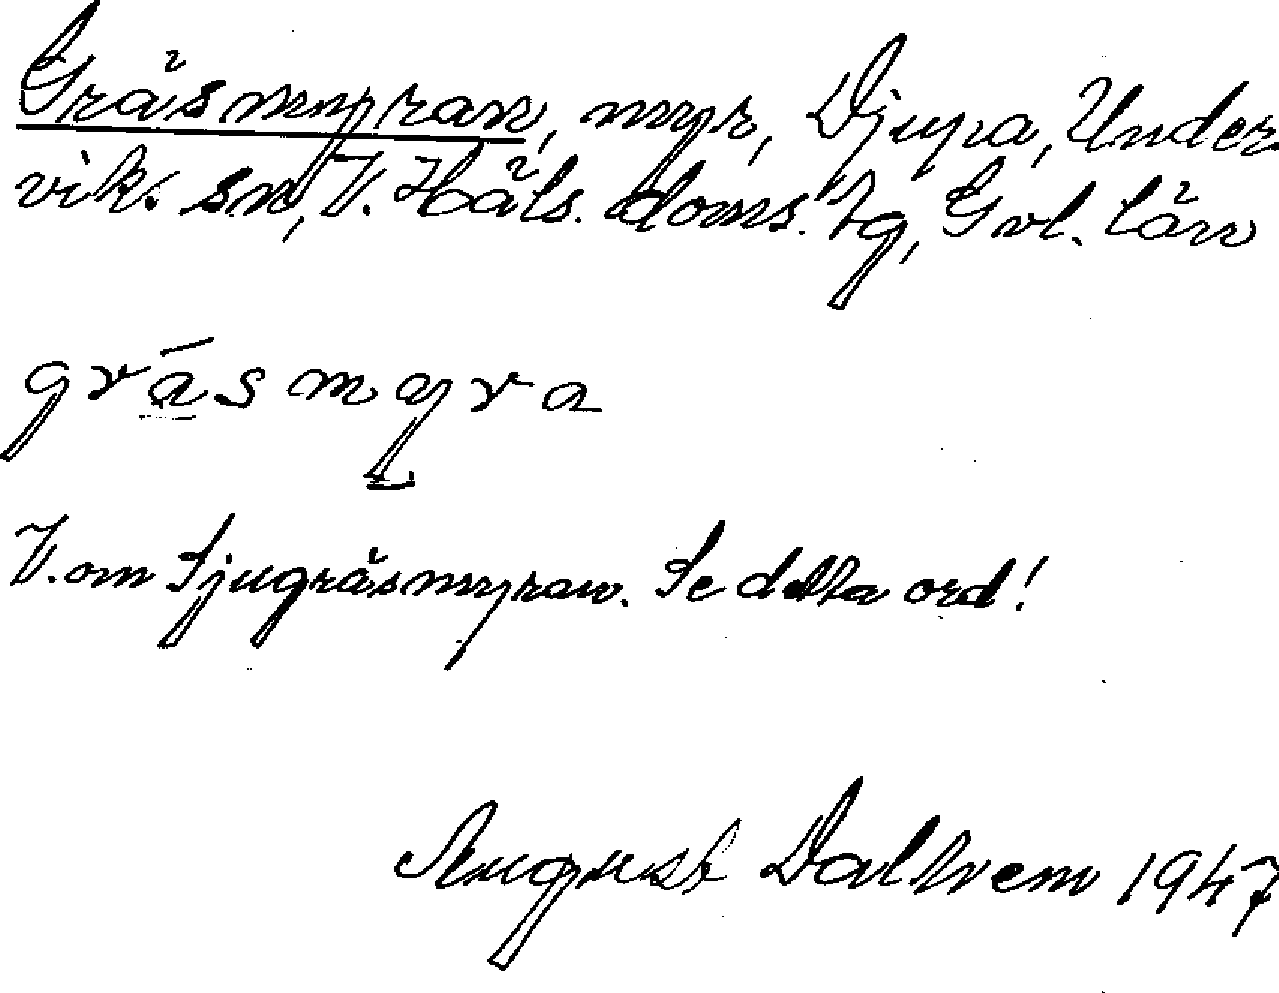 Gräsmyran, myr, Djupa, Under
vik. sn, V. Häls. doms. Zg, Gvl. län
grásmyra
V. om Sjugräsmyran. Se detta ord!
August Dalhem 1947